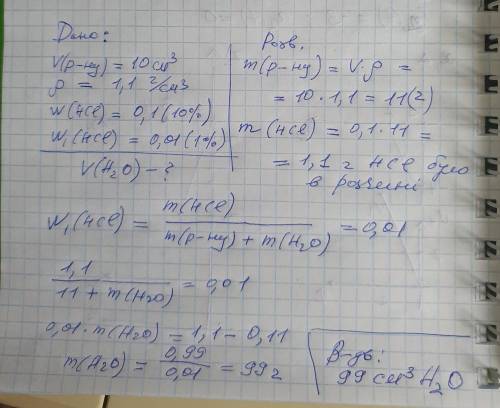 Дано:
V(р-ну) = 10 см³
ρ = 1,1 г/см³
W(HCl) = 0,1 (10%)
W₁(HCl) = 0,01 (1%)
V(H₂O) - ?
Розв.
m(р-ну) = V·ρ =
= 10 · 1,1 = 11(г)
m(HCl) = 0,1 · 11 =
= 1,1 г HCl було
в розчині
W₁(HCl) = m(HCl) / m(р-ну) + m(H₂O) = 0,01
1,1 / 11 + m(H₂O) = 0,01
0,01 · m(H₂O) = 1,1 - 0,11
m(H₂O) = 0,99 / 0,01 = 99 г
В-дь:
99 см³ H₂O